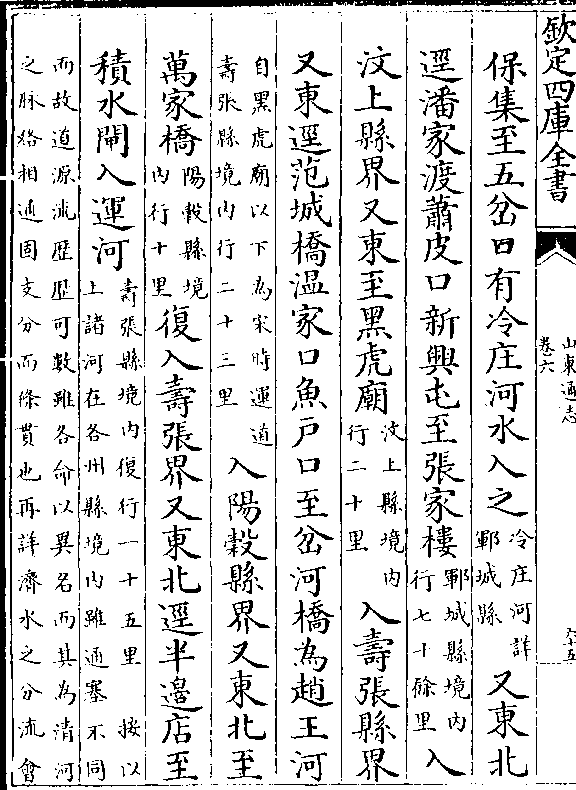 欽定四庫全書
山東通志
卷六
六十五
保集至五岔曰有冷庄河水入之
冷庄河詳
鄆城縣
又東北
逕潘家渡蕭皮口新興屯至張家樓
鄆城縣境内
行七十餘里
入
汶上縣界又東至黑虎廟
汶上縣境内
行二十里
入壽張縣界
又東逕范城橋溫家口魚戶口至岔河橋為趙王河
自黑虎廟以下為宋時運道
壽張縣境内行二十三里
入陽穀縣界又東北至
萬家橋
陽穀縣境
内行十里
復入壽張界又東北逕半邊店至
積水閘入運河
壽張縣境内復行一十五里 按以
上諸河在各州縣境内雖通塞不同
而故道源流歴歴可數雖各命以異名而其為清河
之脉絡相通固支分而條貫也再詳濟水之分流會